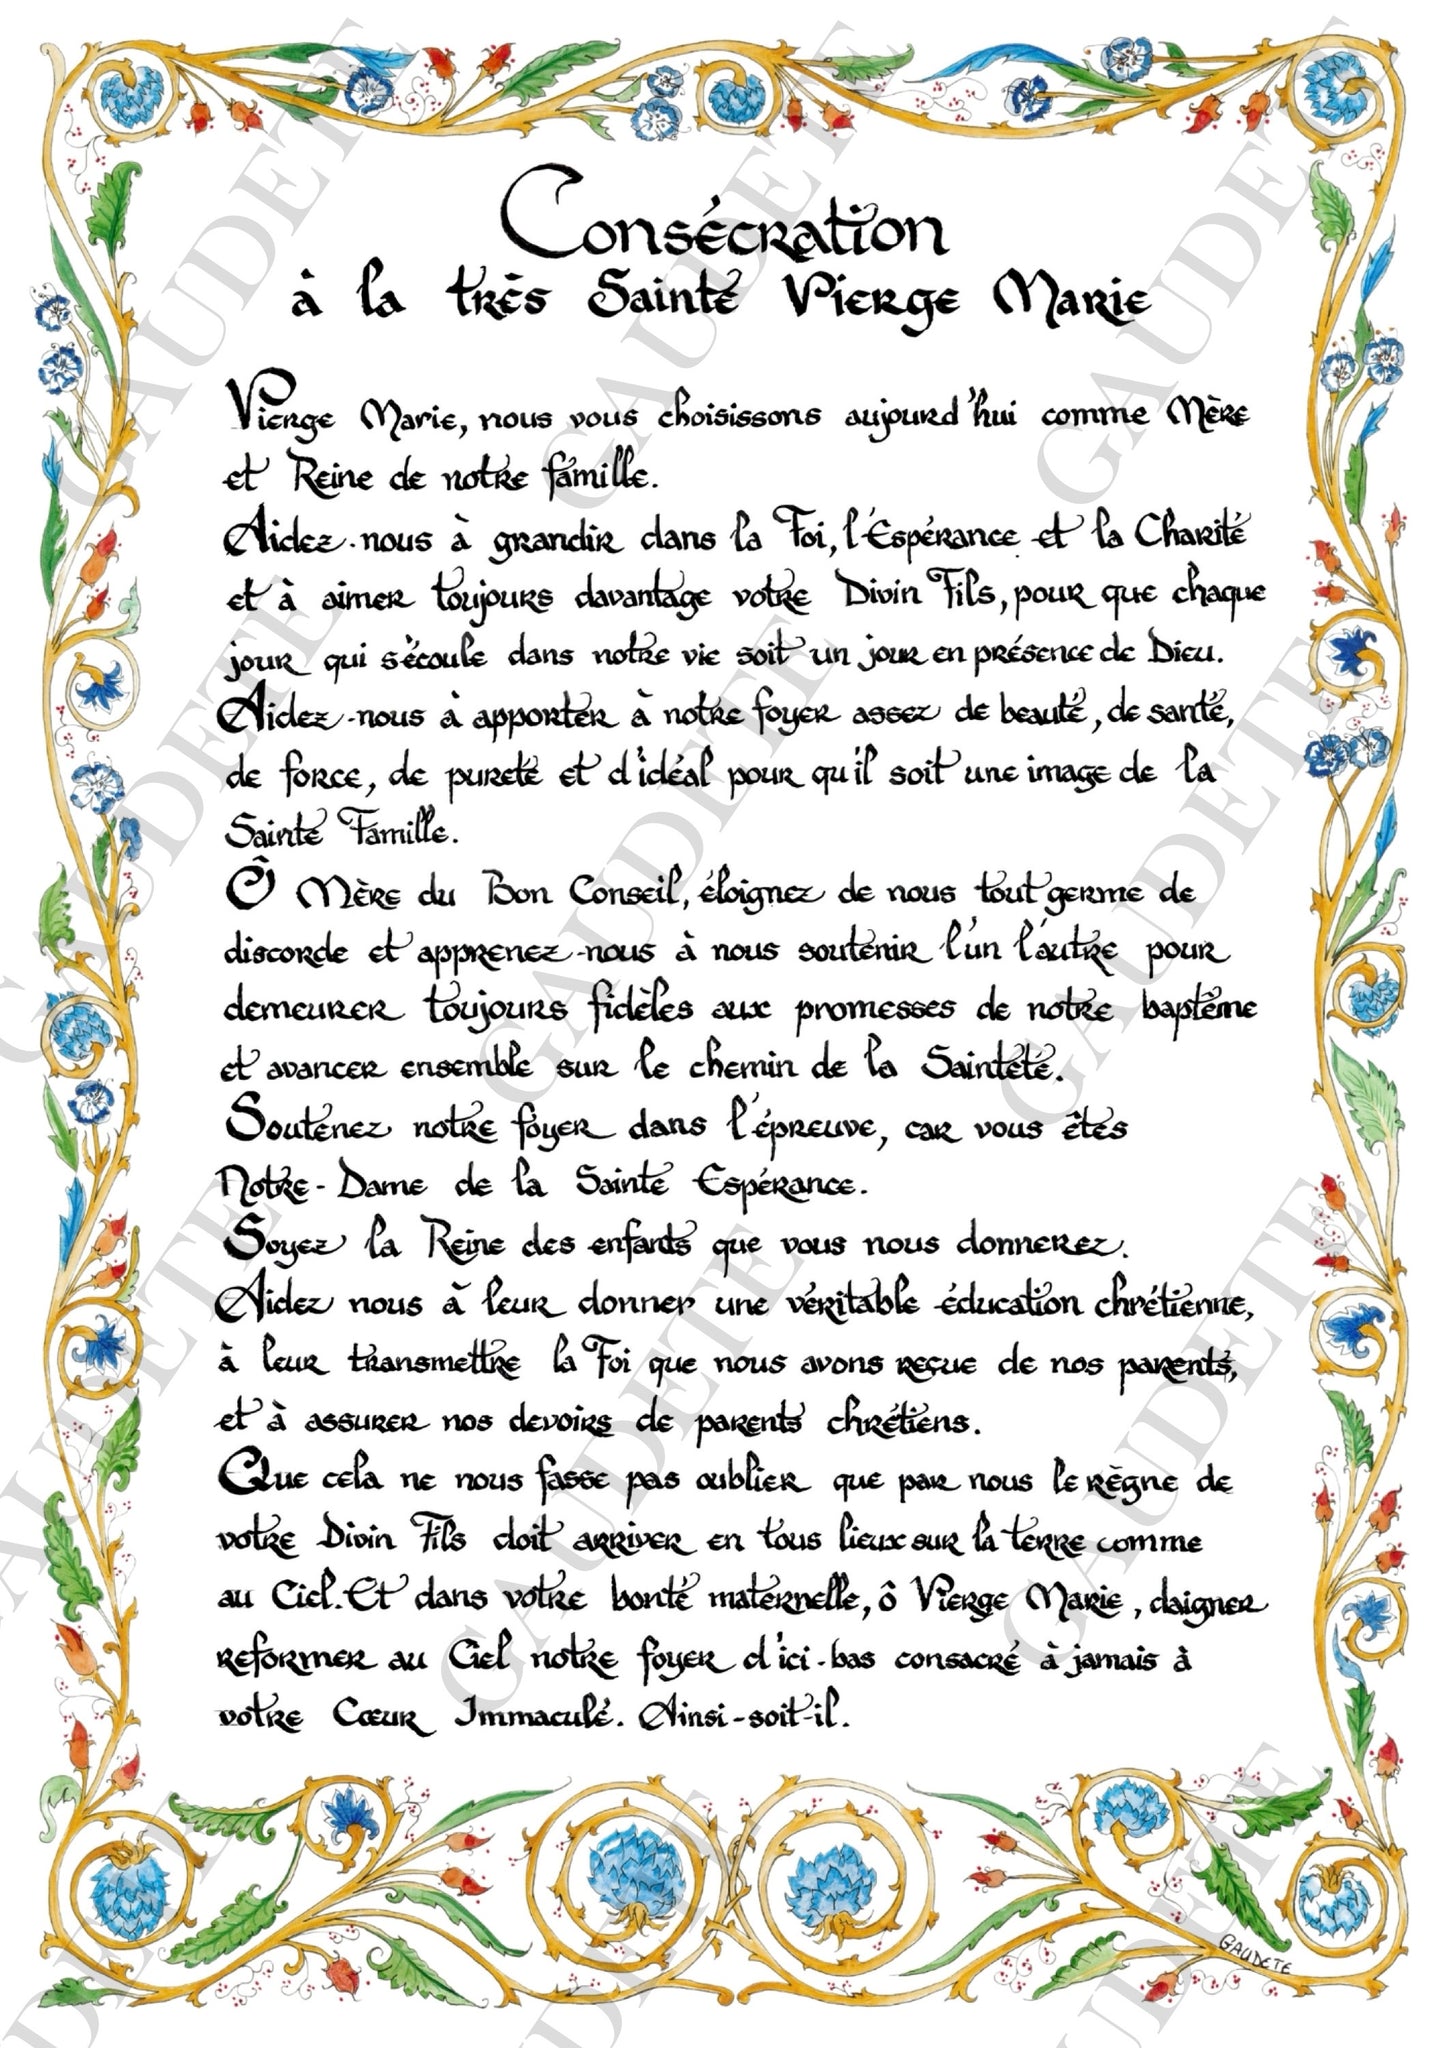 Consécration
à la très Sainte Vierge Marie
Vierge Marie, nous vous choisissons aujourd'hui comme Mère
et Reine de notre famille.
Aidez-nous à grandir dans la Foi, l'Espérance et la Charité
et à aimer toujours davantage votre Divin Fils, pour que chaque
jour qui s'écoule dans notre vie soit un jour en présence de Dieu.
Aidez-nous à apporter à notre foyer assez de beauté, de santé,
de force, de pureté et d'idéal pour qu'il soit une image de la
Sainte Famille.
Ô Mère du Bon Conseil, éloignez de nous tout germe de
discorde et apprenez-nous à nous soutenir l'un l'autre pour
demeurer toujours fidèles aux promesses de notre baptême
et avancer ensemble sur le chemin de la Sainteté.
Soutenez notre foyer dans l'épreuve, car vous êtes
Notre-Dame de la Sainte Espérance.
Soyez la Reine des enfants que vous nous donnerez.
Aidez nous à leur donner une véritable éducation chrétienne,
à leur transmettre la Foi que nous avons reçue de nos parents,
et à assurer nos devoirs de parents chrétiens.
Que cela ne nous fasse pas oublier que par nous le règne de
votre Divin Fils doit arriver en tous lieux sur la terre comme
au Ciel. Et dans votre bonté maternelle, ô Vierge Marie, daigner
reformer au Ciel notre foyer d'ici-bas consacré à jamais à
votre Cœur Immaculé. Ainsi-soit-il.
GAUDETE